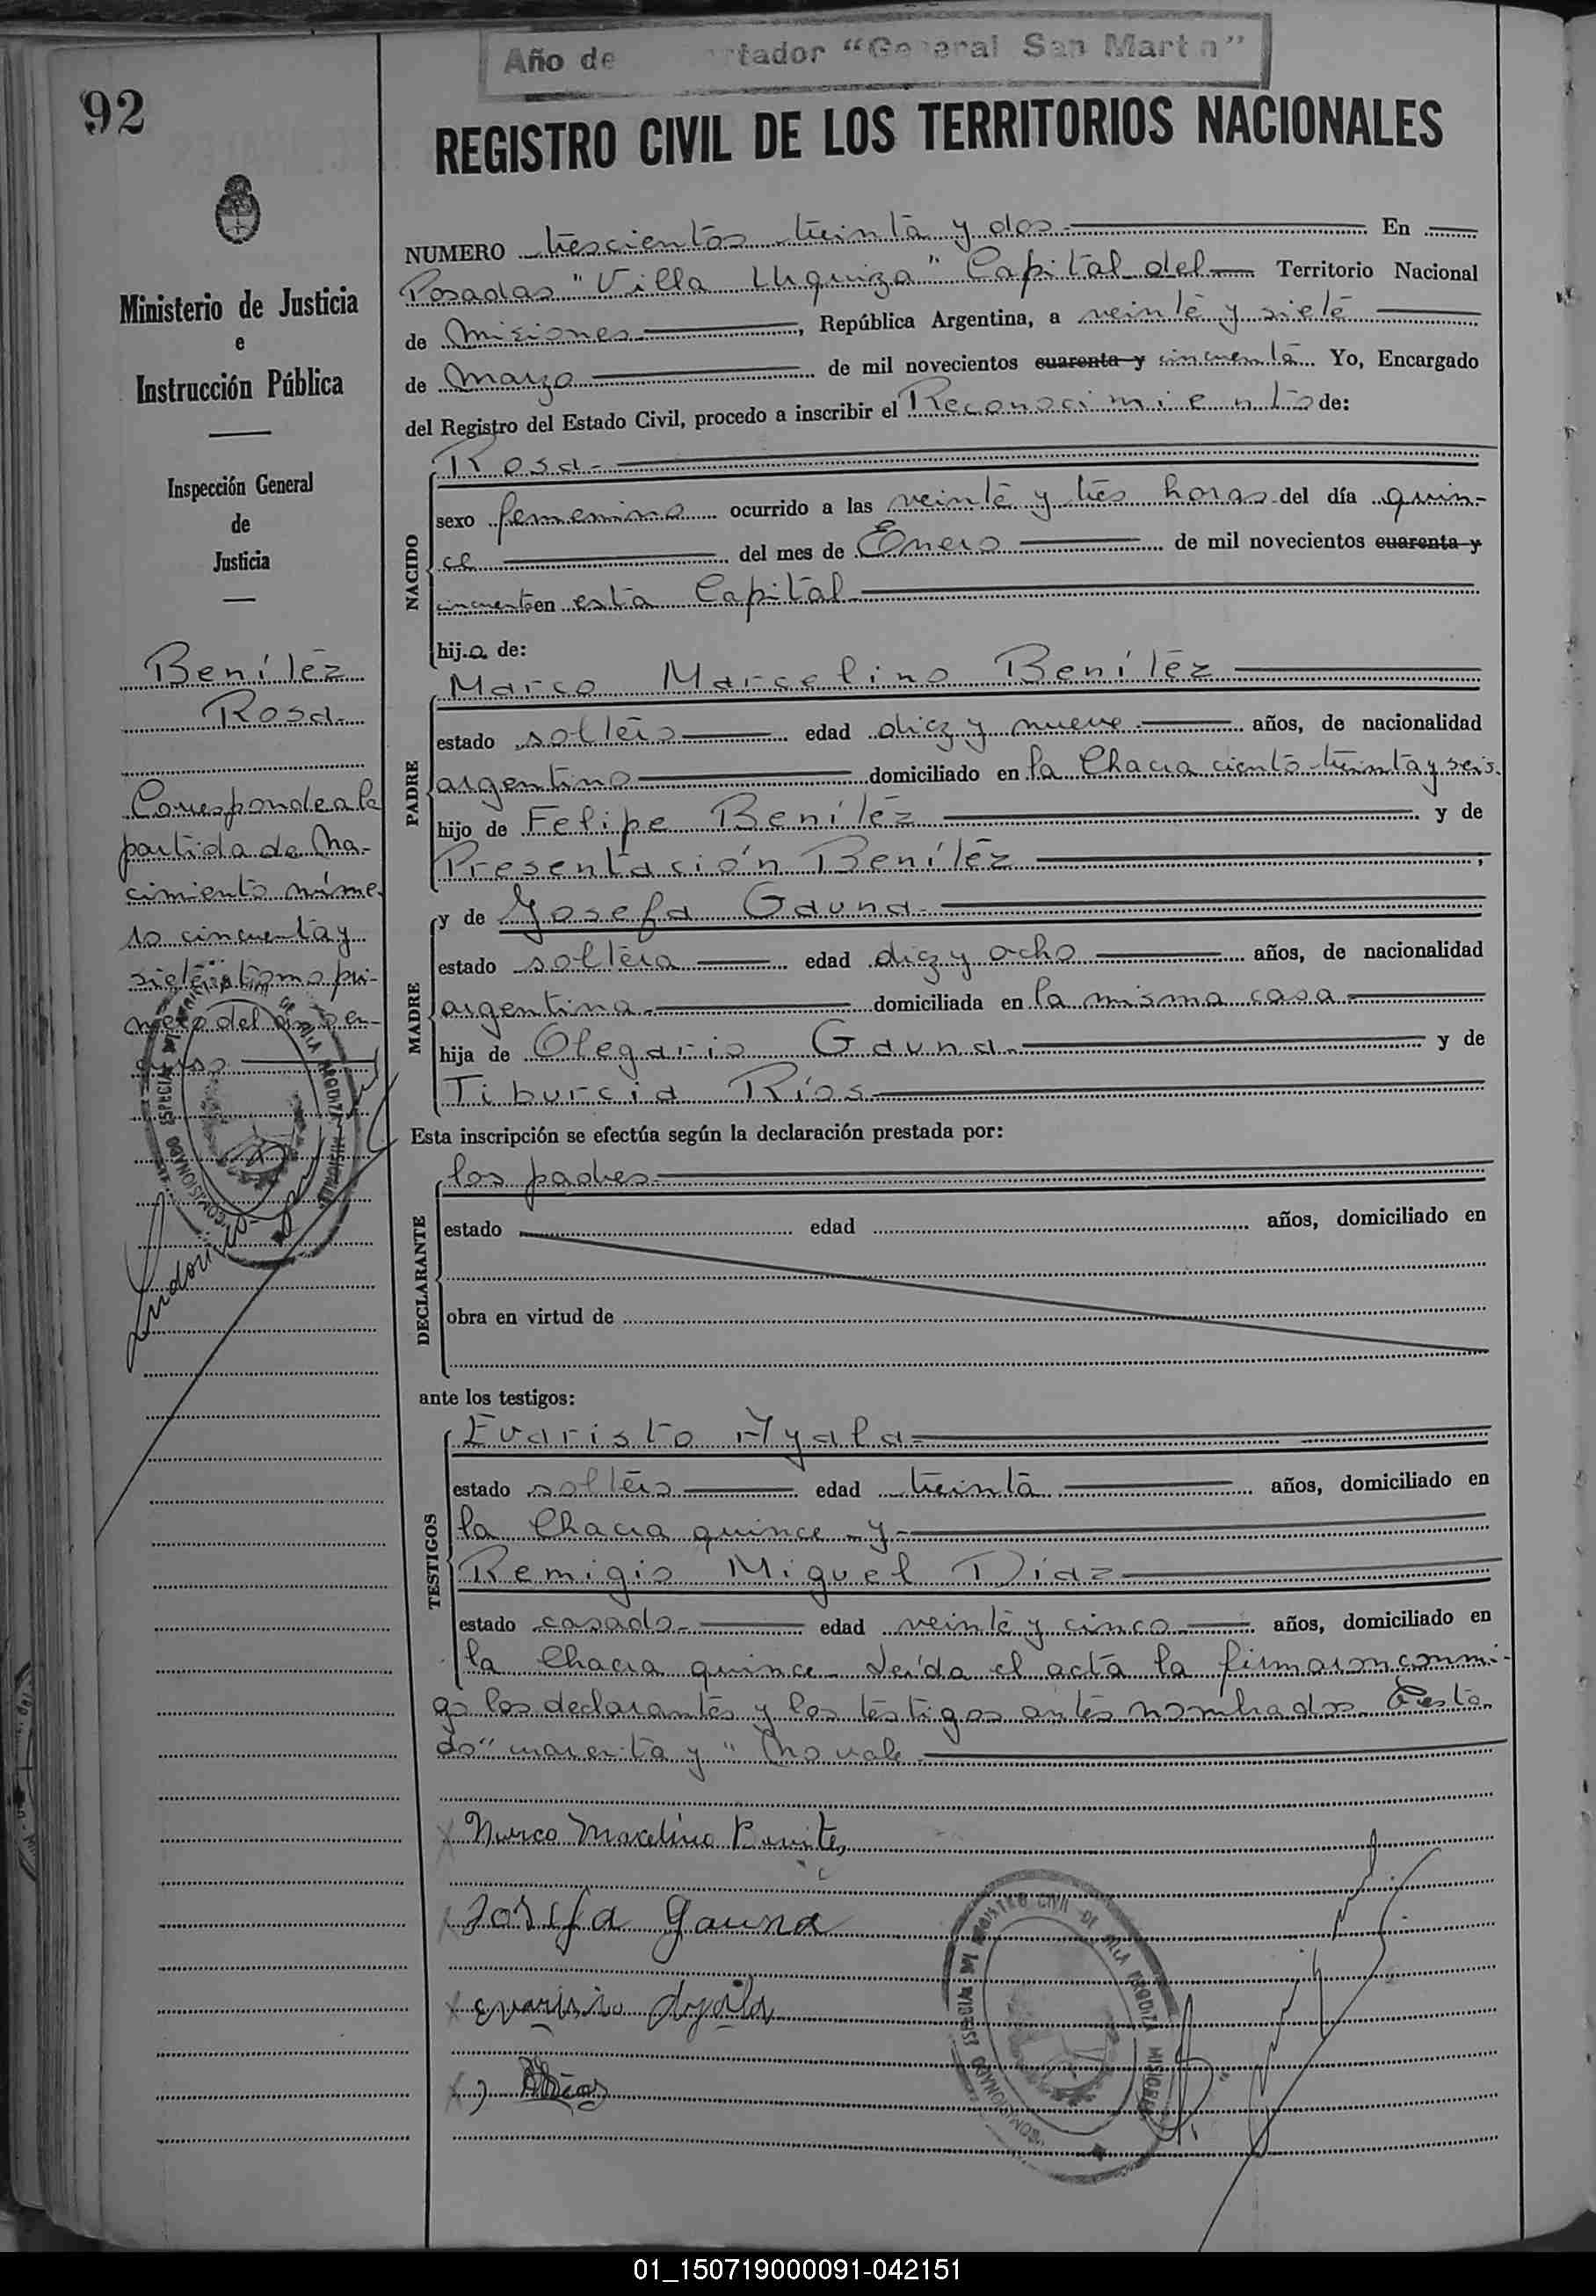 Año de tador "General San Martin"
92
REGISTRO CIVIL DE LOS TERRITORIOS NACIONALES
Ministerio de Justicia
e
Instrucción Pública
Inspección General
de
Justicia
Benítez
Rosa
Corresponde a la
partida de Na-
cimiento núme-
ro cincuenta y
siete tomo pri-
mero del año en
curso
NUMERO trescientos treinta y dos En
Posadas "Villa Urquiza" Capital del Territorio Nacional
de Misiones, República Argentina, a veinte y siete
de Marzo de mil novecientos cuarenta y cincuenta Yo, Encargado
del Registro del Estado Civil, procedo a inscribir el Reconocimiento de:
NACIDO
Rosa
sexo femenino ocurrido a las veinte y tres horas del día quin-
ce del mes de Enero de mil novecientos cuarenta y
cincuenta en esta Capital
hija de:
PADRE
Marco Marcelino Benítez
estado soltero edad diez y nueve años, de nacionalidad
argentino domiciliado en la Chacra ciento treinta y seis
hijo de Felipe Benítez y de
Presentación Benítez;
MADRE
y de Josefa Gauna
estado soltera edad diez y ocho años, de nacionalidad
argentina domiciliada en la misma casa
hija de Olegario Gauna y de
Tiburcia Ríos
Esta inscripción se efectúa según la declaración prestada por:
DECLARANTE
los padres
estado edad años, domiciliado en
obra en virtud de
ante los testigos:
TESTIGOS
Evaristo Ayala
estado soltero edad treinta años, domiciliado en
la Chacra quince y
Remigio Miguel Díaz
estado casado edad veinte y cinco años, domiciliado en
la Chacra quince. Leída el acta la firmaron conmi-
go los declarantes y los testigos antes nombrados. Testa-
do "cuarenta y" No vale
Marco Marcelino Benitez
Josefa Gauna
evaristo Ayala
REGISTRO CIVIL DE VILLA URQUIZA MISIONES
COMISIONADO ESPECIAL
01_150719000091-042151